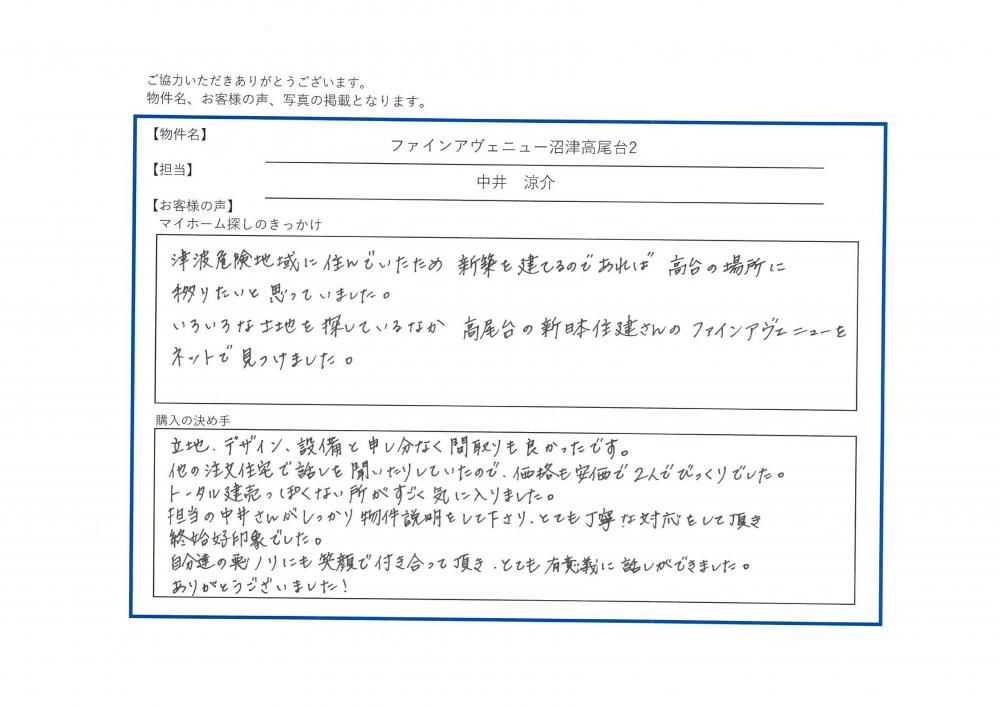 ご協力いただきありがとうございます。
物件名、お客様の声、写真の掲載となります。
【物件名】
ファインアヴェニュー沼津高尾台2
【担当】
中井 涼介
【お客様の声】
マイホーム探しのきっかけ
津波危険地域に住んでいたため 新築を建てるのであれば 高台の場所に
移りたいと思っていました。
いろいろな土地を探しているなか 高尾台の新日本住建さんのファインアヴェニューを
ネットで見つけました。
購入の決め手
立地、デザイン、設備と申し分なく間取りも良かったです。
他の注文住宅で話しを聞いたりしていたので、価格も安価で2人でびっくりでした。
トータル建売っぽくない所がすごく気に入りました。
担当の中井さんがしっかり物件説明をして下さり、とても丁寧な対応をして頂き
終始好印象でした。
自分達の悪ノリにも笑顔で付き合って頂き、とても有意義に話しができました。
ありがとうございました!